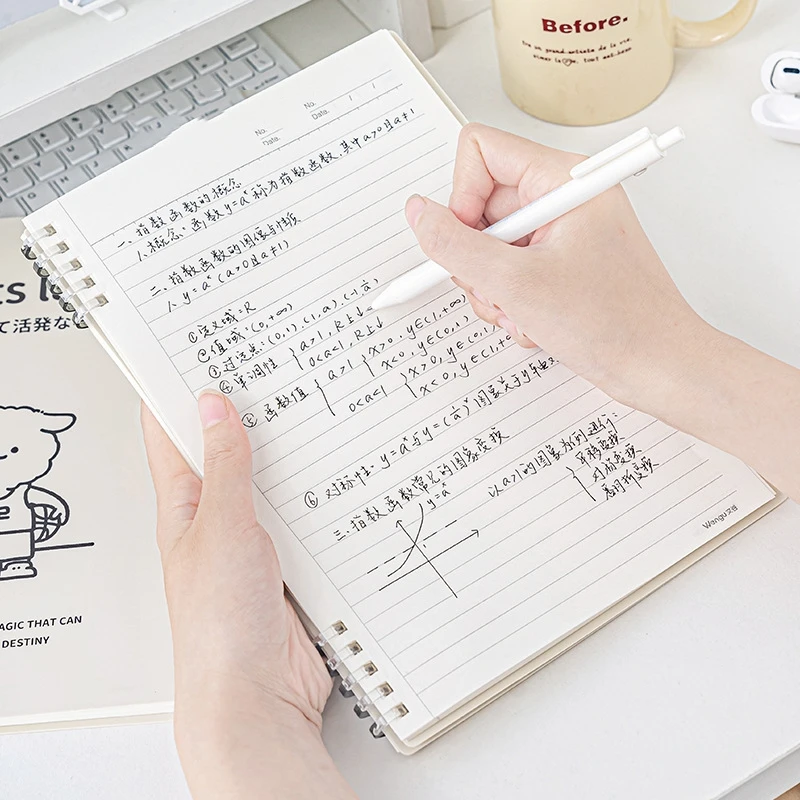 Before.
No.
Date.
No.
Date. / /
一、指数函数的概念
1、概念：函数 y=aˣ 称为指数函数，其中 a>0 且 a≠1
二、指数函数的图像与性质
1、y=aˣ (a>0且a≠1)
①定义域=R
②值域:(0,+∞)
③过定点:(0,1),(1,a),(-1,1/a)
④单调性 { a>1, R上↓
0<a<1, R上↓
⑤函数值 { a>1 { x>0, y∈(1,+∞)
x<0, y∈(0,1)
0<a<1 { x>0, y∈(0,1)
x<0, y∈(1,+∞
⑥对称性: y=aˣ与y=(1/a)ˣ图象关于y轴
三、指数函数常见的图象变换
y=aˣ
以a>1的图象为例进行:
平移变换
对称变换
翻折变换
Wangu
て活発な
AGIC THAT CAN
DESTINY